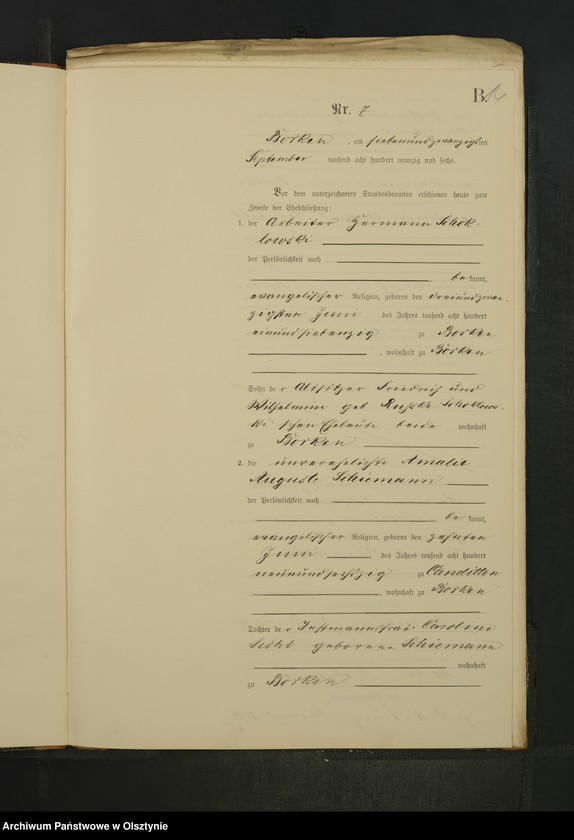 B.
Nr. 7.
Borken, am siebenundzwanzigsten
September tausend acht hundert neunzig und sechs.
Vor dem unterzeichneten Standesbeamten erschienen heute zum
Zwecke der Eheschließung:
1. der Arbeiter Hermann Schok-
lowski
der Persönlichkeit nach
bekannt,
evangelischer Religion, geboren den dreiundzwan-
zigsten Juni des Jahres tausend acht hundert
einundsiebenzig zu Borken
, wohnhaft zu Borken
Sohn der Altsitzer Friedrich und
Wilhelmine geb Schoklows-
ki'schen Eheleute beide wohnhaft
zu Borken
2. die unverehelichte Amalie
Auguste Schiemann
der Persönlichkeit nach
bekannt,
evangelischer Religion, geboren den zehnten
Juni des Jahres tausend acht hundert
neunundsechzig zu Canditten
, wohnhaft zu Borken
Tochter der Instmannsfrau Caroline
geborene Schiemann
wohnhaft
zu Borken
Archiwum Państwowe w Olsztynie